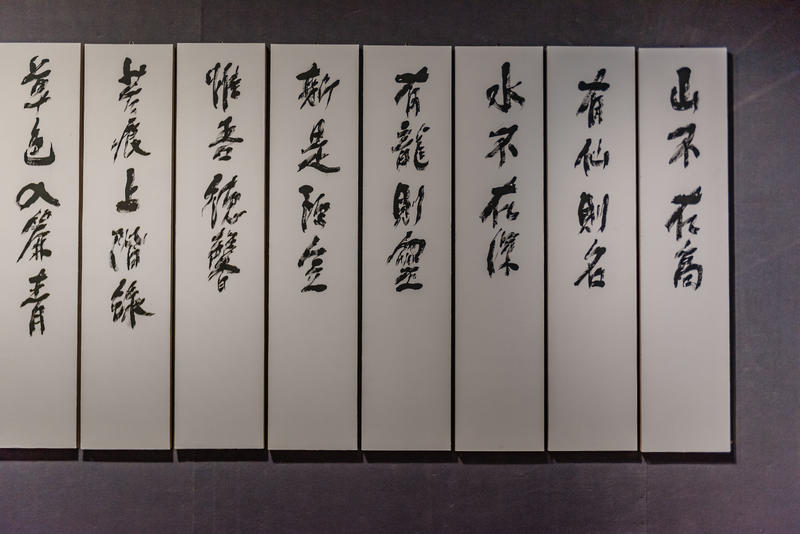 山不在高
有仙則名
水不在深
有龍則靈
斯是陋室
惟吾德馨
苔痕上階綠
草色入簾青